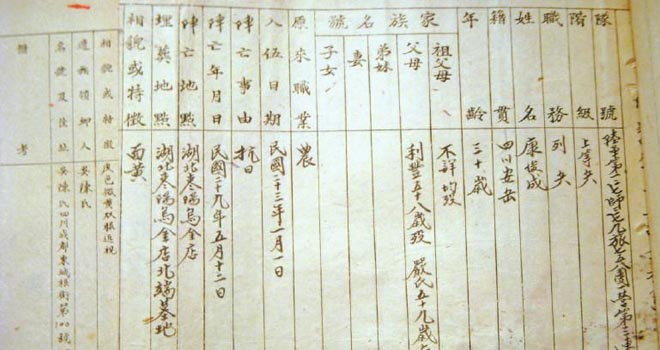 隊號 陸軍第
階級 上等兵
職務 列兵
姓名 康俊成
籍貫 四川安岳
年齡 三十歲
家族名號
祖父母 不詳均歿
父母 利豐五十八歲歿 嚴氏五十九歲
弟妹
妻
子女
原來職業 農
入伍日期 民國二十三年一月一日
陣亡事由 抗日
陣亡年月日 民國二十九年五月十二日
陣亡地點 湖北棗陽烏金店
埋葬地點 湖北棗陽烏金店北端墓地
相貌或特徵 面黃
相貌或特徵 皮色微黃双眼近視
遺族領卹人 吳陳氏
名號及住址 吳陳氏四川成都東城根街第100號
備考